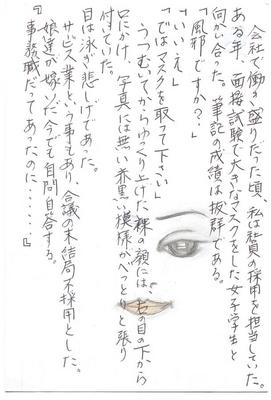 会社で働き盛りだった頃、私は社員の採用を担当していた。
ある年、面接試験で大きなマスクをした女子学生と
向かい合った。筆記の成績は抜群である。
「風邪ですか?」
「いいえ」
「ではマスクを取って下さい」
うつむいてからゆっくり上げた裸の顔には、右の目の下から
口にかけ、写真には無い赤黒い模様がべっとりと張り
付いていた。
目は泳ぎ悲しげであった。
サービス業という事もあり、会議の末結局不採用とした。
娘達が嫁いだ今でも自問自答する。
『事務職だってあったのに……』